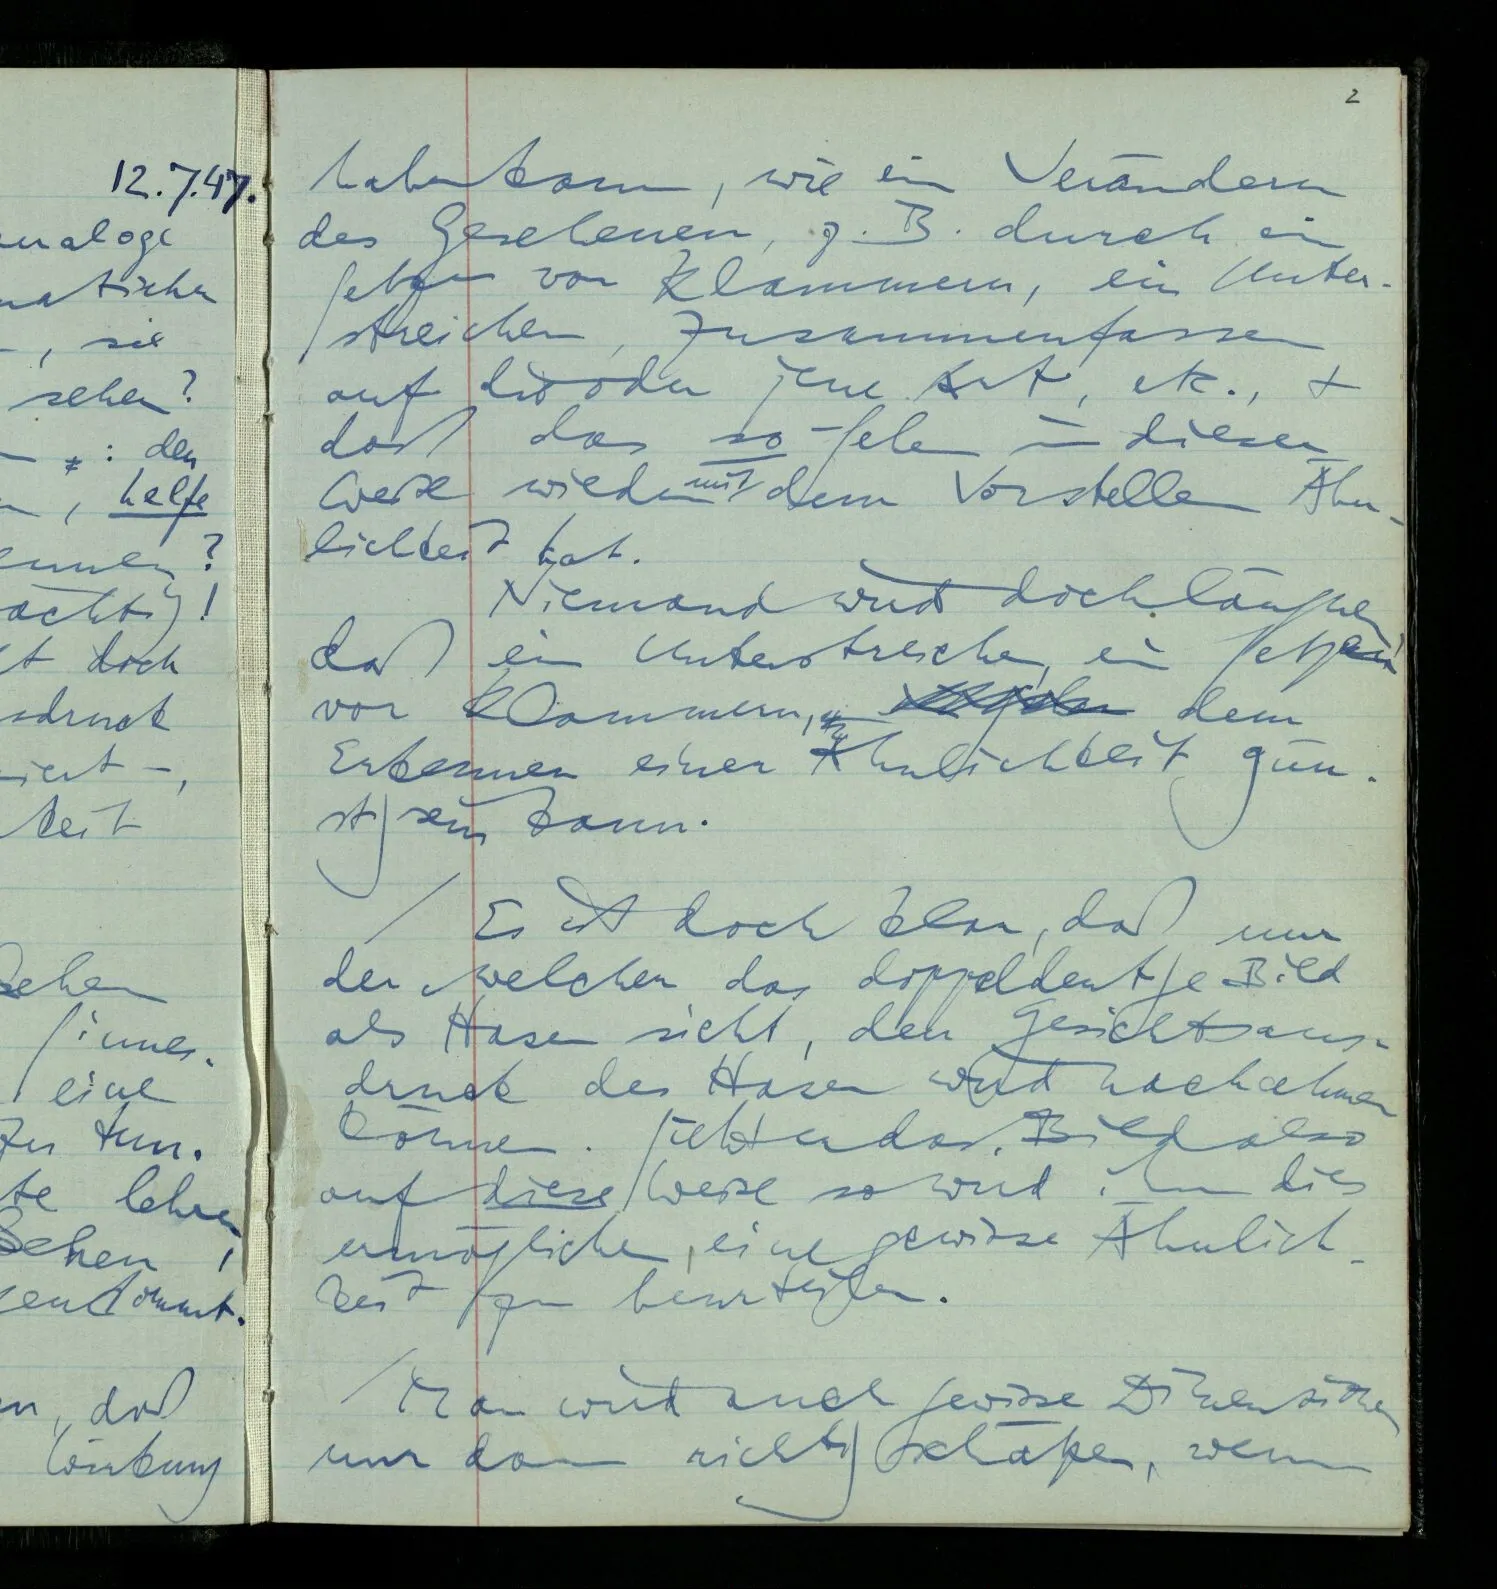 12.7.47.
sie
sehen?
: den
, helfe
?
!
doch
sehen
eine
zu tun.
lehren
, daß
Wirkung
2
haben kann, wie ein Verändern
des Gesehenen, z. B. durch ein
Setzen von Klammern, ein Unter-
streichen, Zusammenfassen
auf die oder jene Art, etc., +
daß das so-Sehen in dieser
Weise wieder mit dem Vorstellen Ähn-
lichkeit hat.
Niemand wird doch läugnen
daß ein Unterstreichen, ein Setzen
von Klammern, dem
Erkennen einer Ähnlichkeit gün-
stig sein kann.
/ Es ist doch klar, daß nur
der welcher das doppeldeutige Bild
als Hasen sieht, den Gesichtsaus-
druck des Hasen wird nachahmen
können. Sieht er das Bild also
auf diese Weise so wird ihm dies
ermöglichen, eine gewisse Ähnlich-
keit zu beurteilen.
/ Man wird auch gewisse Dimensionen
nur dann richtig schätzen, wenn